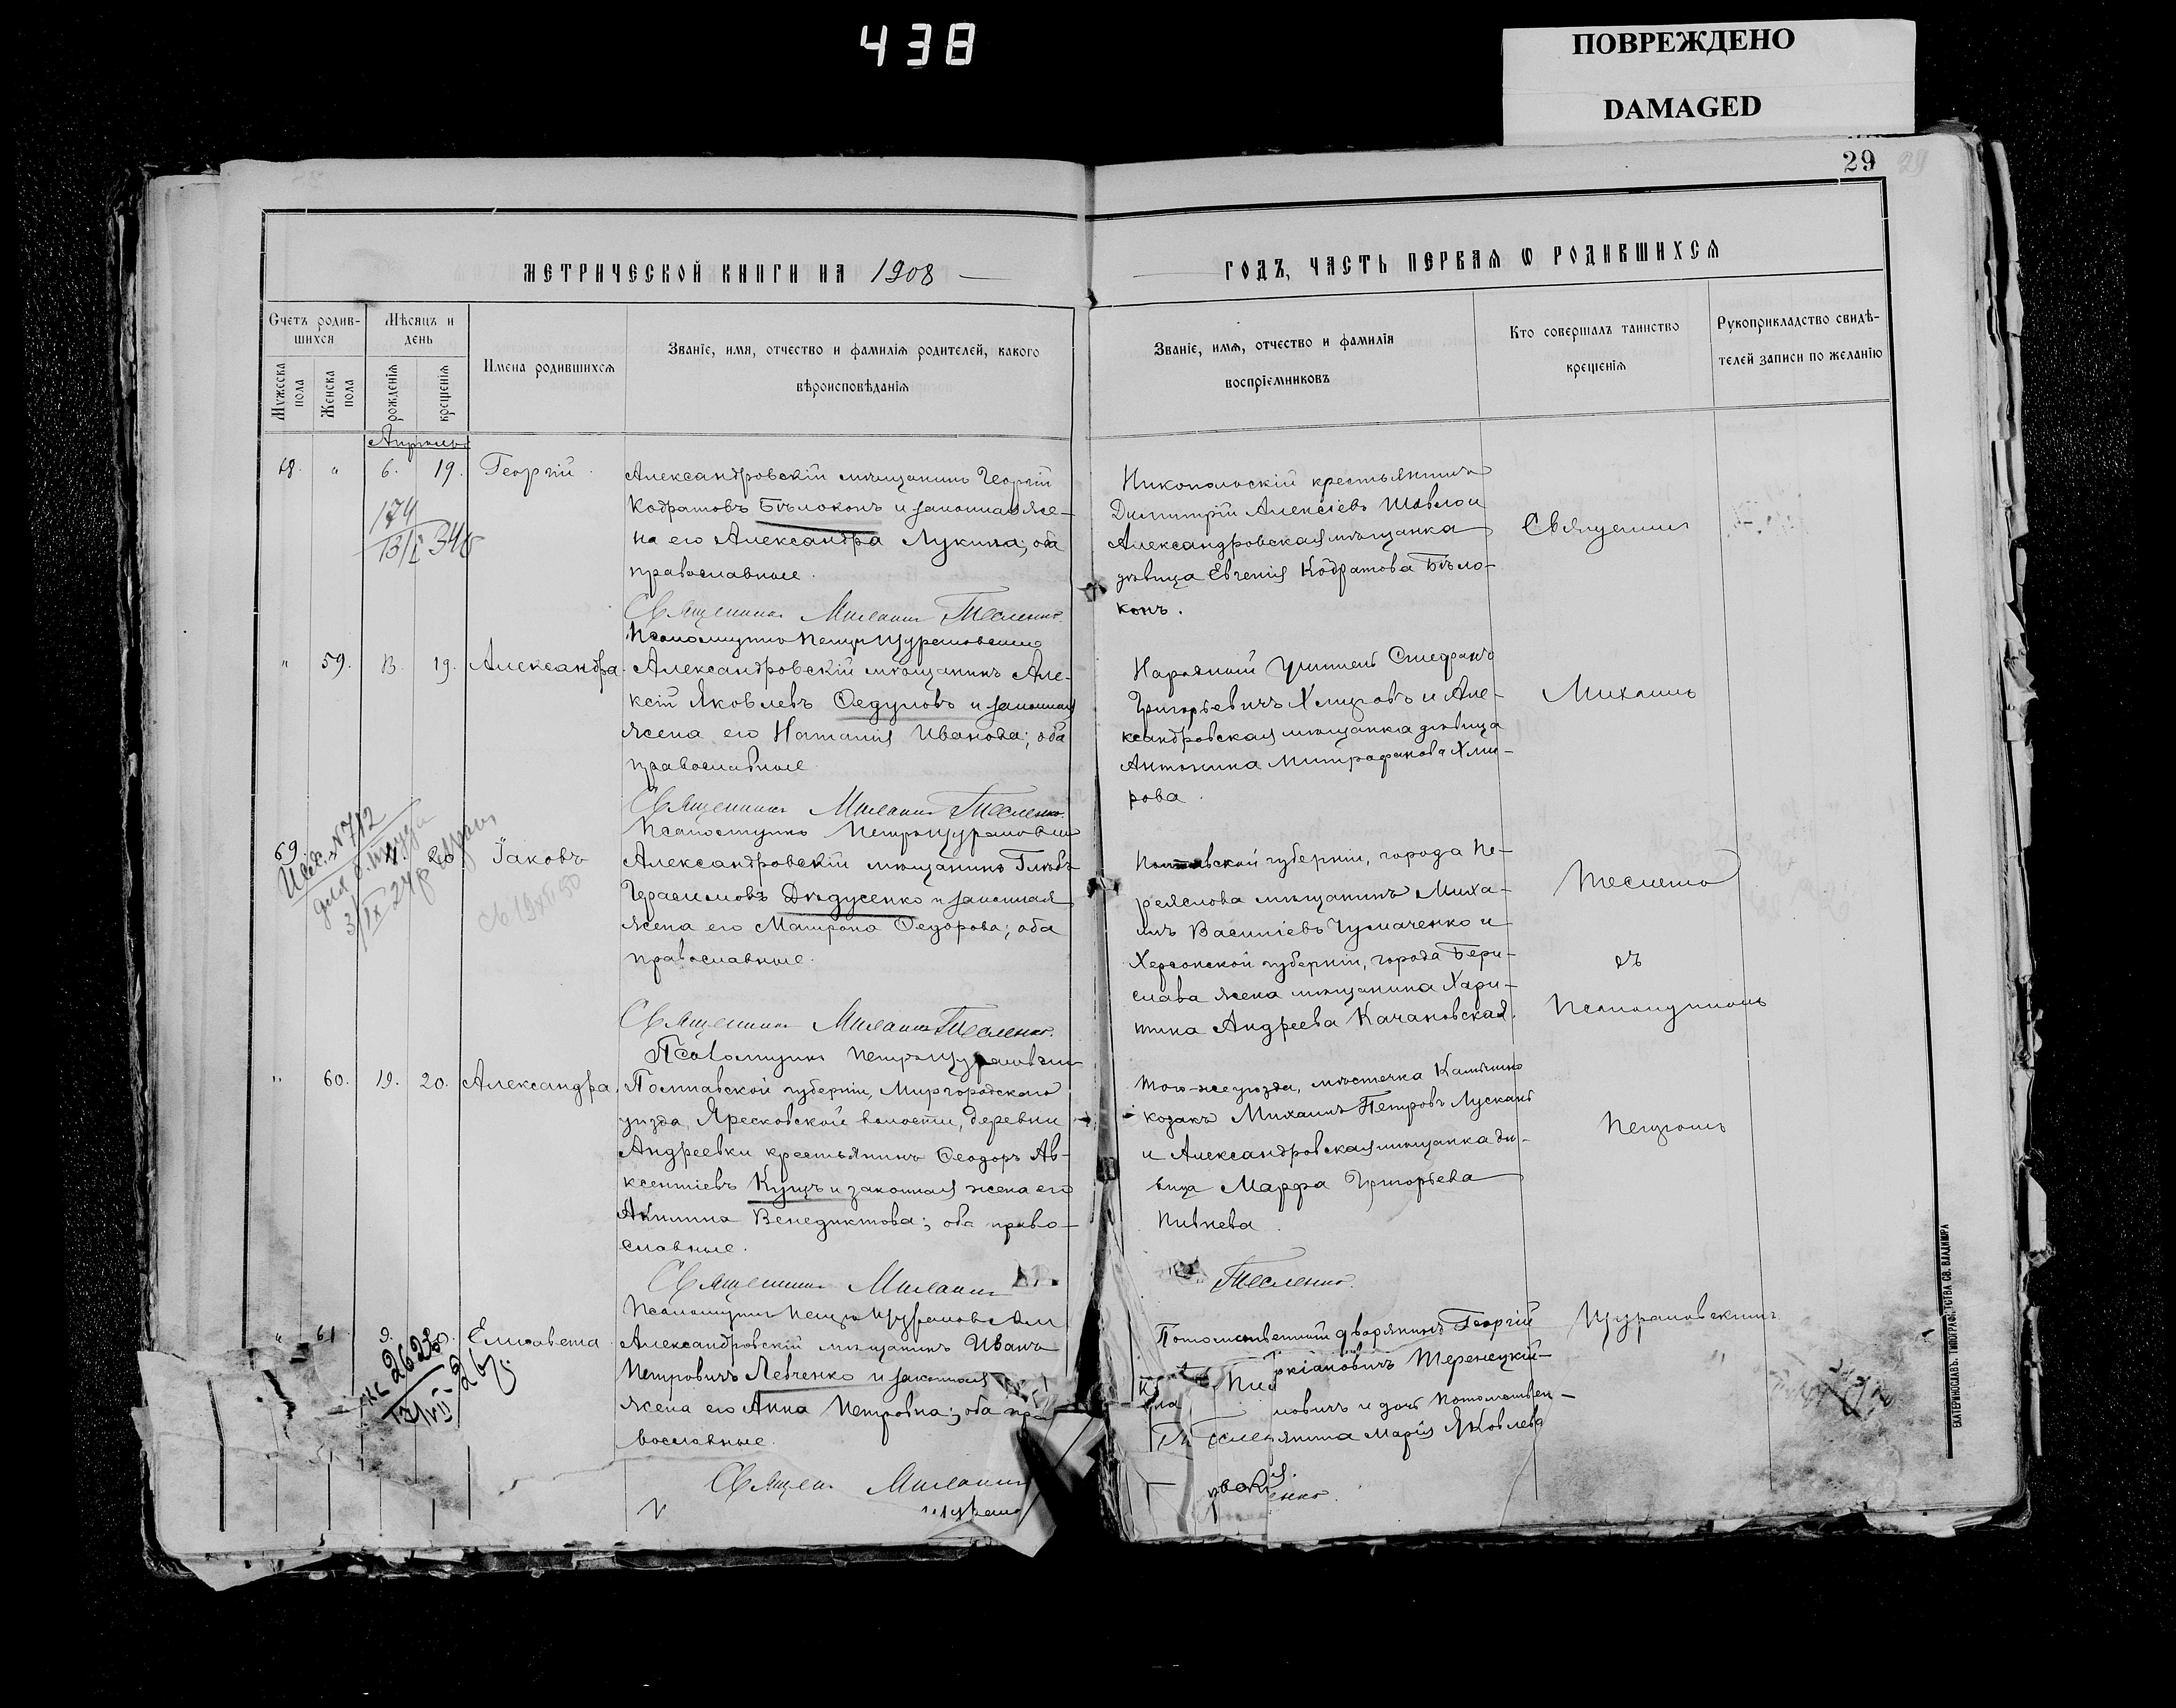 438
ПОВРЕЖДЕНО
DAMAGED
29
МЕТРИЧЕСКОЙ КНИГИ НА 1908
ГОДЪ, ЧАСТЬ ПЕРВАЯ Ѡ РОДИВШИХСЯ
Счетъ родив-
шихся
Мужеска
пола
Женска
пола
Мѣсяцъ и
день
рожденія
крещенія
Имена родившихся
Званіе, имя, отчество и фамилія родителей, какого
вѣроисповѣданія
Званіе, имя, отчество и фамилія
воспріемниковъ
Кто совершалъ таинство
крещенія
Рукоприкладство свидѣ-
телей записи по желанію
Апрѣль
68. " 6. 19. Георгій.
Александровскій мѣщанинъ Георгій
Кодратовъ Бѣлоконъ и законная же-
на его Александра Лукина; оба
православные.
Священникъ Михаилъ Тесленко.
Псаломщикъ Петръ Щурановскій
Никопольскій крестьянинъ
Димитрій Алексіевъ и
Александровская мѣщанка
дѣвица Евгенія Кодратова Бѣло-
конъ.
Священникъ
174
13/I 34
" 59. 13. 19. Александра.
Александровскій мѣщанинъ Але-
ксій Яковлевъ Ѳедуловъ и законная
жена его Наталія Иванова; оба
православные.
Священникъ Михаилъ Тесленко.
Псаломщикъ Петръ Щурановскій
Народный учитель Стефанъ
Григорьевичъ Хмировъ и Але-
ксандровская мѣщанка дѣвица
Антонина Митрофанова Хми-
рова.
Михаилъ
69. 4. 20. Іаковъ
№ 712
Александровскій мѣщанинъ Глѣбъ
Герасимовъ Дѣдусенко и законная
жена его Матрона Ѳедорова; оба
православные.
Священникъ Михаилъ Тесленко.
Псаломщикъ Петръ Щурановскій
Полтавской губерніи, города Пе-
реяслова мѣщанинъ Миха-
илъ Василіевъ Чумаченко и
Херсонской губерніи, города Бери-
слава жена мѣщанина Хари-
тина Андреева Качановская.
Тесленко
съ
Псаломщикомъ
" 60. 19. 20. Александра.
Полтавской губерніи, Миргородскаго
уѣзда, Яресковской волости, деревни
Андреевки крестьянинъ Ѳеодоръ Ав-
ксентіевъ Кущъ и законная жена его
Акилина Венедиктова; оба право-
славные.
Священникъ Михаилъ Тесленко.
Псаломщикъ Петръ Щурановскій
Того-же уѣзда, мѣстечка
козакъ Михаилъ Петровъ Лускань
и Александровская мѣщанка дѣ-
вица Марфа Григорьева
Пивнева.
Петромъ
" 61. 9. Елисавета
Александровскій мѣщанинъ Иванъ
Петровичъ Левченко и законная
жена его Анна Петровна; оба пра-
вославные.
Священ Михаилъ
Потомственный дворянинъ Георгій
ркіановичъ Теренецкій
новичъ и дочь потомствен-
янина Марія Яковлева
Щурановскимъ
ЕКАТЕРИНОСЛАВЪ. ТИПОГРАФ. ТСТВА СВ. ВЛАДИМІРА